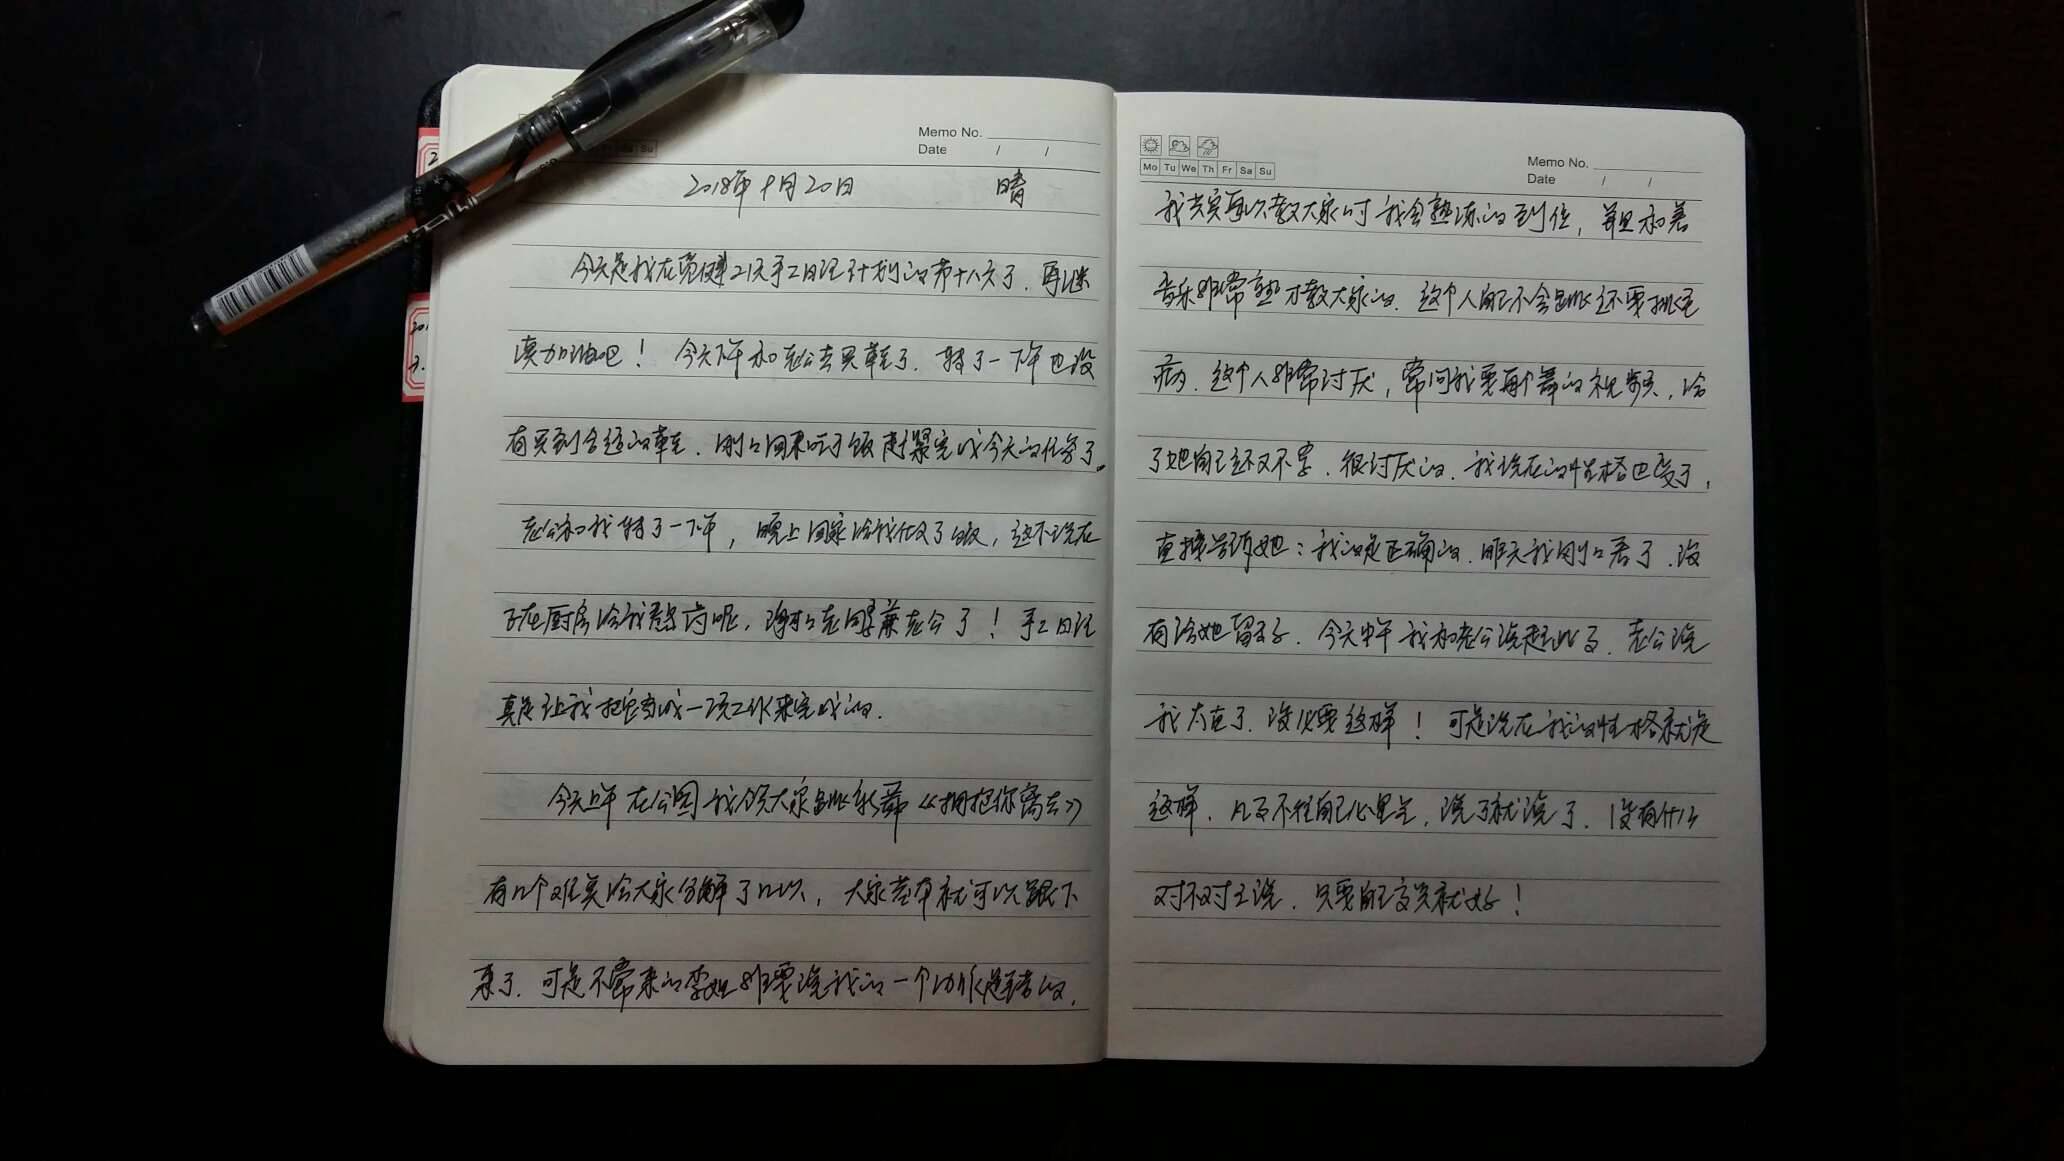 Memo No.
Date / /
2018年9月20日 晴
今天是我在 21天手工日记计划的第十八天了．再继
续加油吧！今天下午和老公去买鞋了．转了一下午也没
有买到合适的鞋．刚刚回来吃了饭赶紧完成今天的任务了。
老公和我转了一下午，晚上回家给我做了饭，这不现在
又在厨房给我熬药呢，谢谢老同学兼老公了！手工日记
真是让我把它当成一项工作来完成的．
今天上午在公园我领大家跳新舞《拥抱你离去》
有几个难点给大家分解了几次，大家基本就可以跟下
来了．可是不常来的李姐非要说我的一个动作是错的，
Mo Tu We Th Fr Sa Su
Memo No.
Date / /
我 教大家时我会熟练的到位，并且和着
音乐非常熟才教大家的．这个人自己不会跳还要挑毛
病．这个人非常讨厌，常问我要每个舞的视频，给
了她自己还又不学．很讨厌的．我现在的性格也变了，
直接告诉她：我的是正确的．昨天我刚刚看了．没
有给她留面子．今天中午我和老公说起此事．老公说
我太直了．没必要这样！可是现在我的性格就是
这样．凡事不往自己心里去．说了就说了．没有什么
对不对之说．只要自己高兴就好！